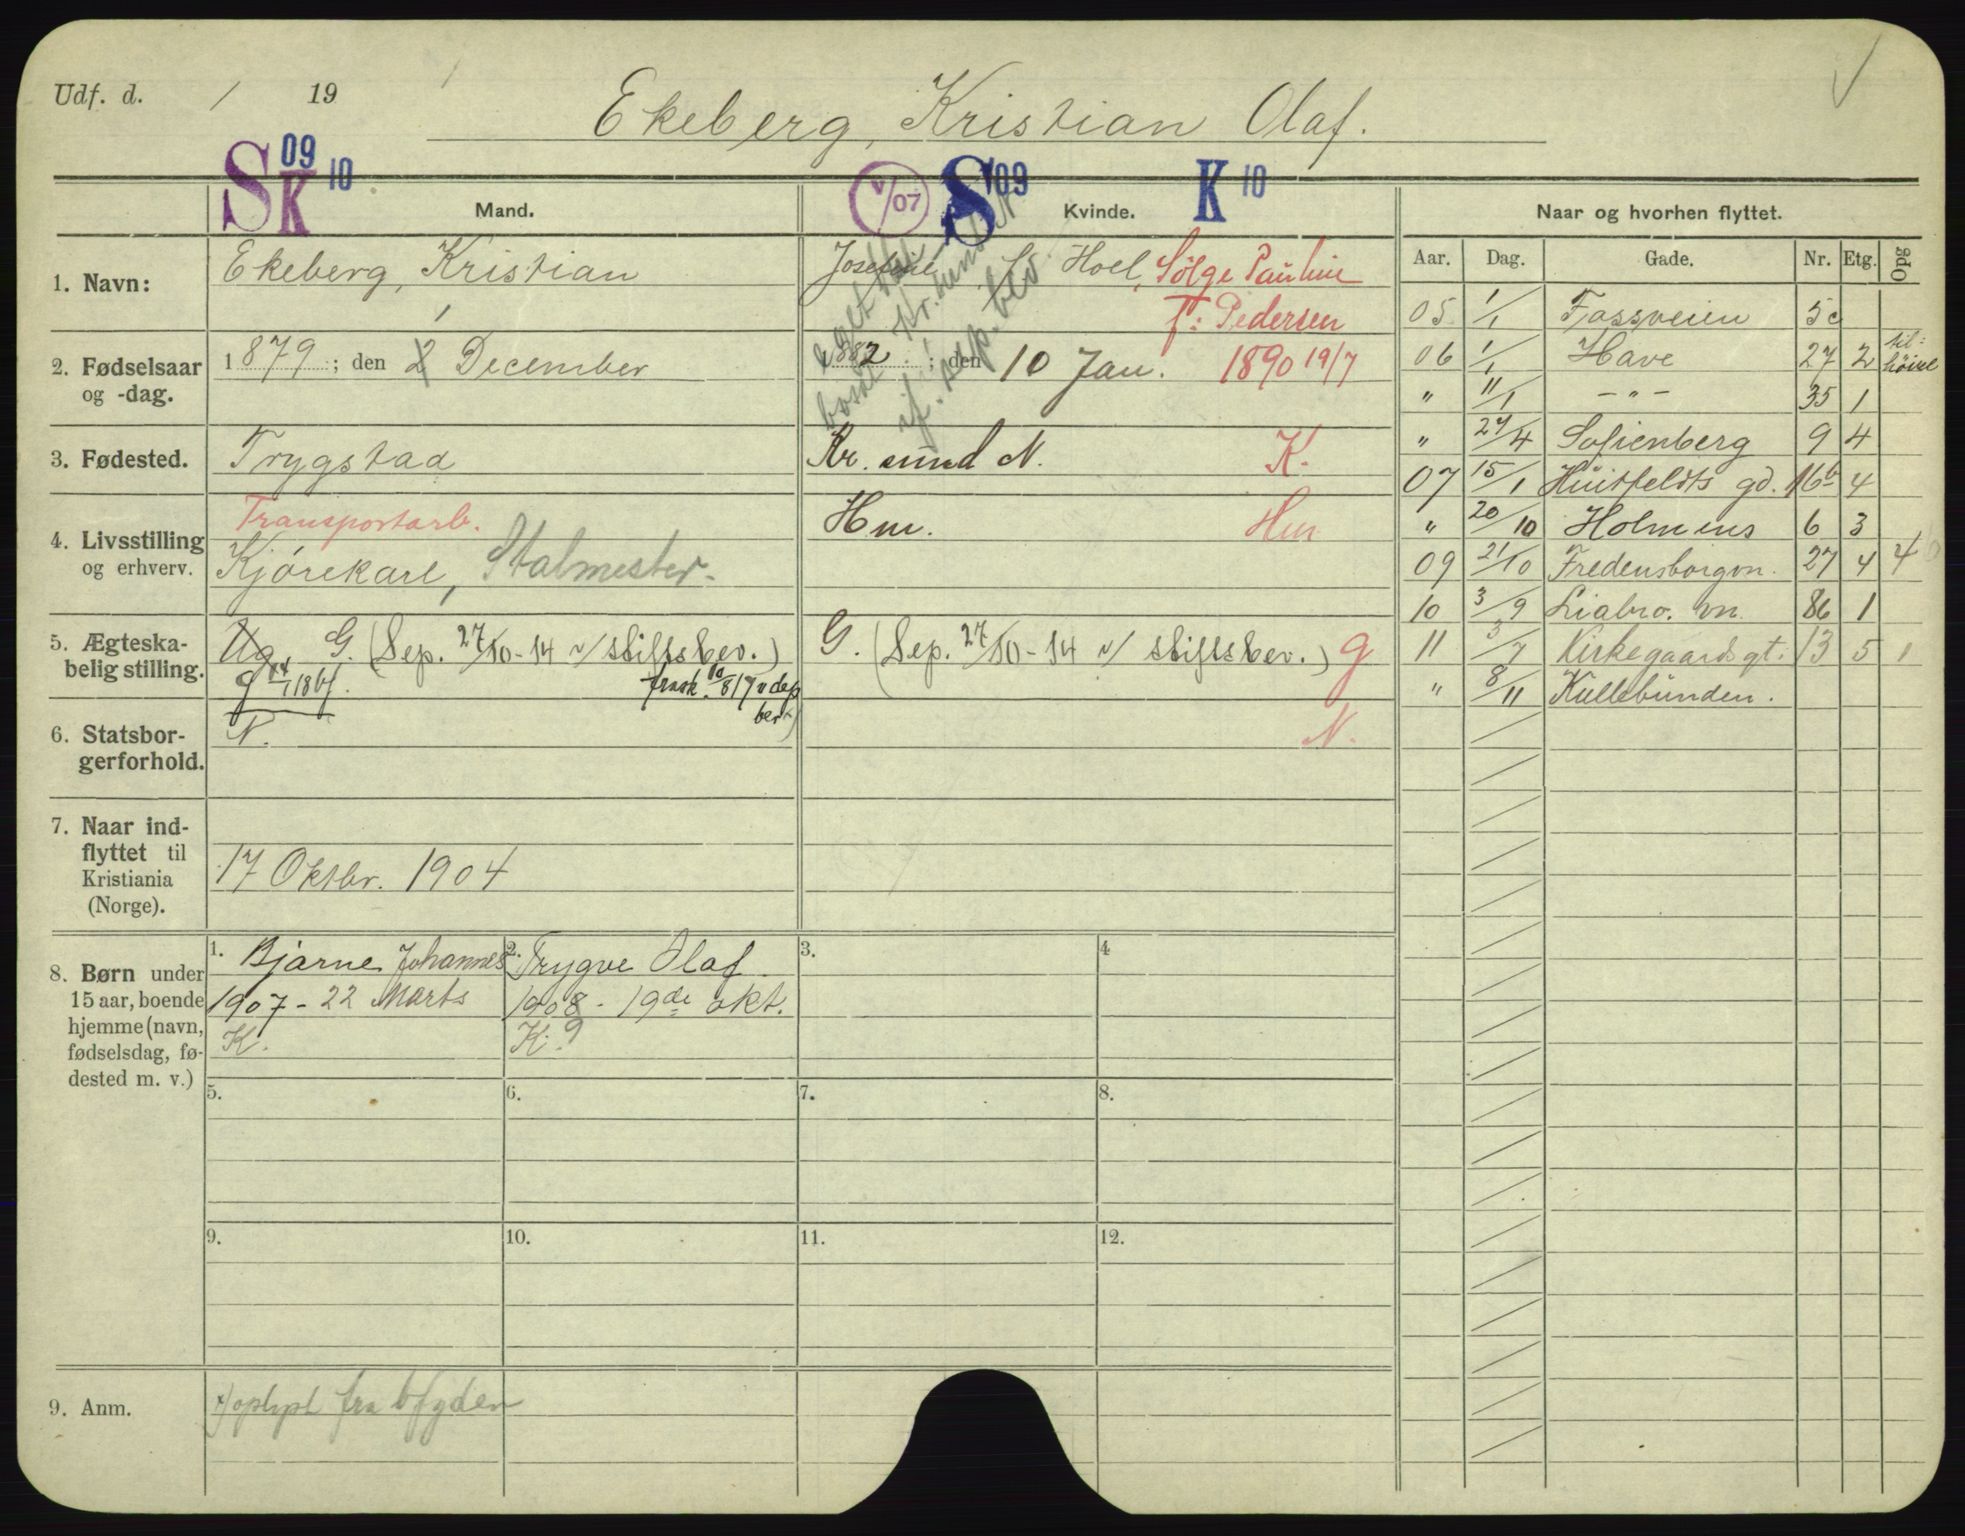 Udf. d. / 19
Ekeberg, Kristian Olaf.
S 09 K 10
Mand.
/07
S 09
K 10
Kvinde.
Naar og hvorhen flyttet.
Aar. Dag. Gade. Nr. Etg. Opg
1. Navn:
Ekeberg, Kristian
Josefine Hoel, Sølge Pauline
f: Pedersen
2. Fødselsaar
og -dag.
1879; den 2 December
1882; den 10 Jan. 1890 19/7
3. Fødested.
Trygstad
Kr. sund N. K.
4. Livsstilling
og erhverv.
Transportarb.
Kjørekarl, Stalmester.
Hm. Hm
5. Ægteska-
belig stilling.
Ug. G. (Sep. 27/10-14 v/ stiftsbev.)
G. (Sep. 27/10-14 v/ stiftsbev.) g
6. Statsbor-
gerforhold.
N.
N.
7. Naar ind-
flyttet til
Kristiania
(Norge).
17 Oktbr. 1904
8. Børn under
15 aar, boende
hjemme (navn,
fødselsdag, fø-
dested m. v.)
1. Bjarne Johannes
1907 - 22 Marts
K.
2. Trygve Olaf
1908 - 19de okt.
K.
3.
4
5.
6.
7.
8.
9.
10.
11.
12.
9. Anm.
fra
05 1/1 Fossveien 5c
06 1/1 Have 27 2
" 11/1 - " - 35 1
" 24/4 Sofienberg 9 4
07 15/1 Huitfeldts gd. 16b 4
" 20/10 Holmens 6 3
09 21/10 Fredensborgvn. 27 4 4
10 3/9 Liabro. vn. 86 1
11 3/7 Kirkegaardsgt. 13 5 1
" 8/11 Kullebunden.